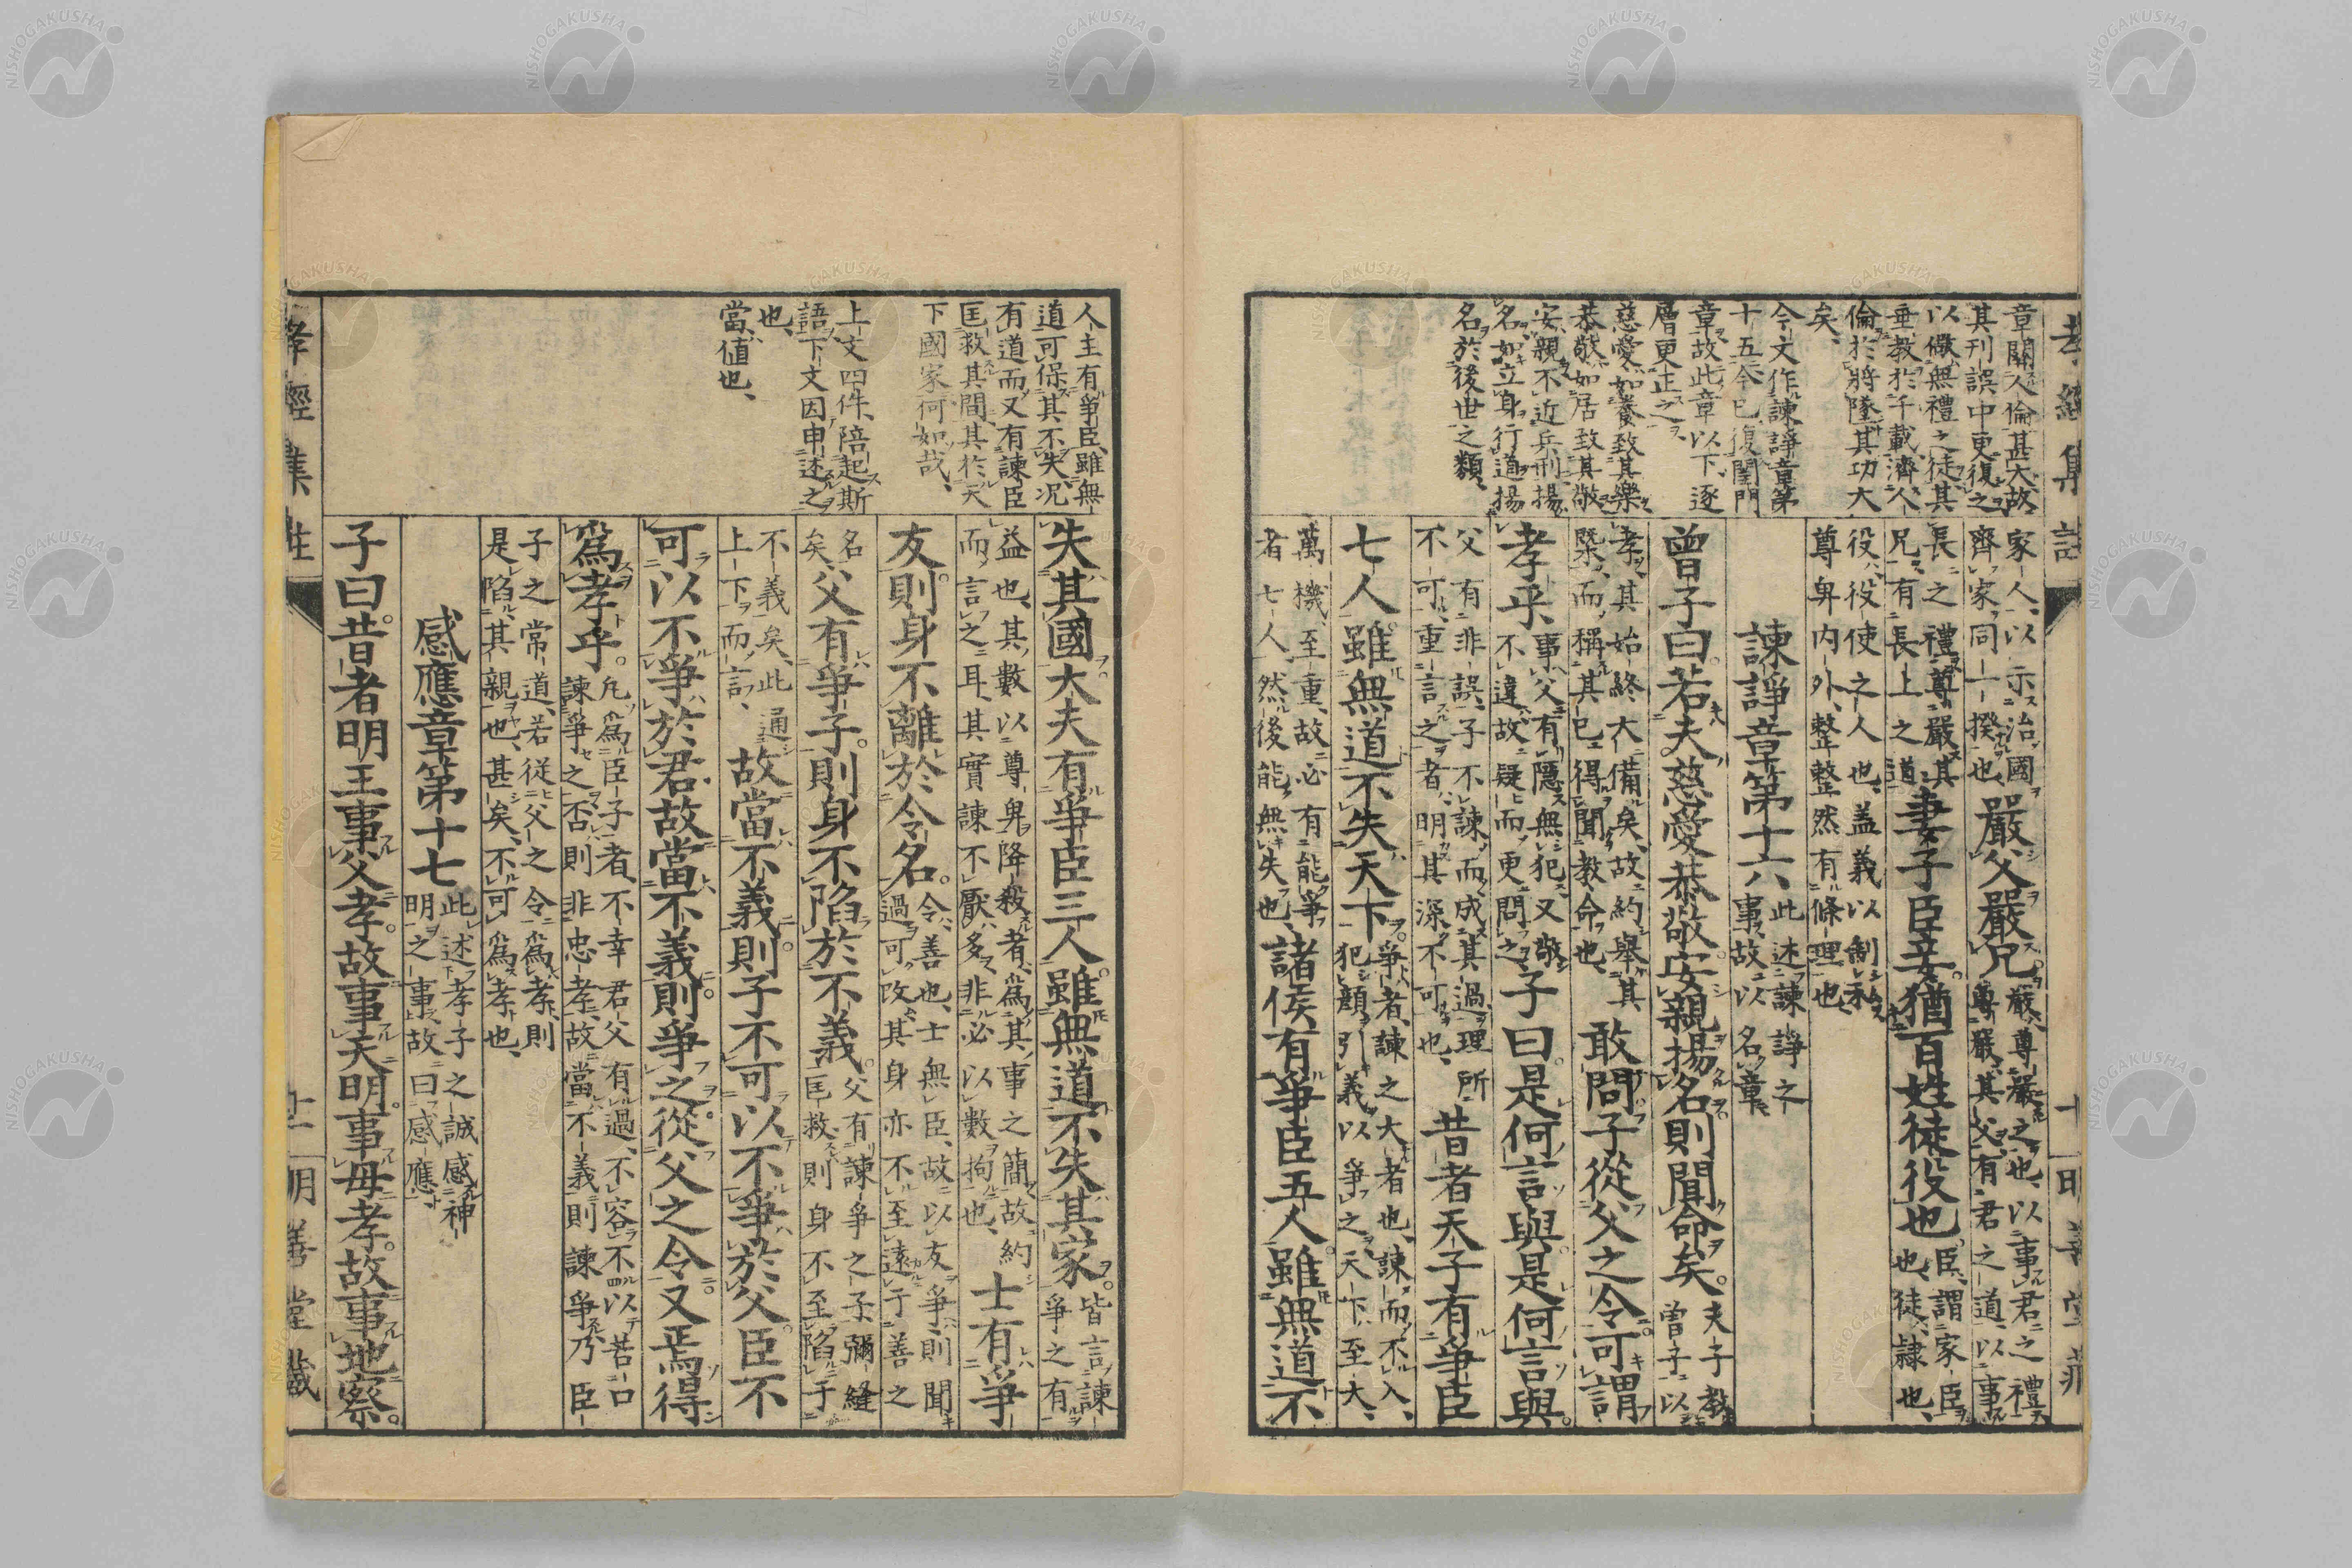 孝經集註
十
明善堂藏
章關人倫甚大故
其刊誤中更復之
以儆無禮之徒其
垂教於千載濟人
倫於將墜其功大
矣、
今文作諫諍章第
十五今已復閨門
章故此章以下逐
層更正之
慈愛如養致其樂
恭敬如居致其敬
安親不近兵刑揚
名如立身行道揚
名於後世之類、
家人以示治國
齊家同一揆也、
嚴父嚴兄
嚴尊嚴之也、以事君之禮
尊嚴其父有君之道以事
長之禮尊嚴其
兄有長上之道
妻子臣妾猶百姓徒役也
臣謂家臣
也徒隷也、
役役使之人也、蓋義以制私
尊卑内外、整整然有條理也、
諫諍章第十六
此述諫諍之
事故以名章
曾子曰若夫慈愛恭敬安親揚名則聞命矣。
夫子教
曾子以
孝其始終大備矣故約舉其
槩而稱其已得聞教命也、
敢問子從父之令可謂
孝乎、
事父有隱無犯又敬
不違故疑而更問之
子曰是何言與是何言與。
父有非誤子不諫而成其過理所
不可重言之者明其深不可也、
昔者天子有爭臣
七人雖無道不失天下。
爭者諫之大者也、諫而不入、
犯顏引義以爭之天下至大、
萬機至重、故必有能爭
者七人然後能無失也、
諸侯有爭臣五人雖無道不
人主有爭臣雖無
道可保其不失况
有道而又有諫臣
匡救其間其於天
下國家何如哉、
上文四件陪起斯
語下文因申述之
也、
當値也、
失其國大夫有爭臣三人雖無道不失其家。
皆言諫
爭之有
益也、其數以尊卑降殺者爲其事之簡故約
而言之耳、其實諫不厭多、非必以數拘也、
士有爭
友則身不離於令名。
令善也、士無臣、故以友爭則聞
過可改其身亦不至遠于善之
名
矣、
父有爭子則身不陷於不義。
父有諫爭之子彌縫
匡救則身不至陷于
不義矣、此通
上下而言、
故當不義則子不可以不爭於父臣不
可以不爭於君故當不義則爭之從父之令又焉得
爲孝乎。
凡爲臣子者不幸君父有過不容不以苦口
諫爭之否則非忠孝故當不義則諫爭乃臣
子之常道、若從父之令爲孝則
是陷其親也、甚矣、不可爲孝也、
感應章第十七
此述孝子之誠感神
明之事故曰感應
子曰。昔者明王事父孝。故事天明。事母孝。故事地察。
孝經集註
十一
明善堂藏